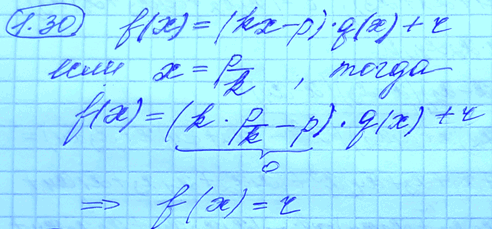 1.30 f(x) = (kx-p)·q(x)+r
если x = p/k, тогда
f(x) = (k · p/k - p)·q(x)+r
0
=> f(x) = r